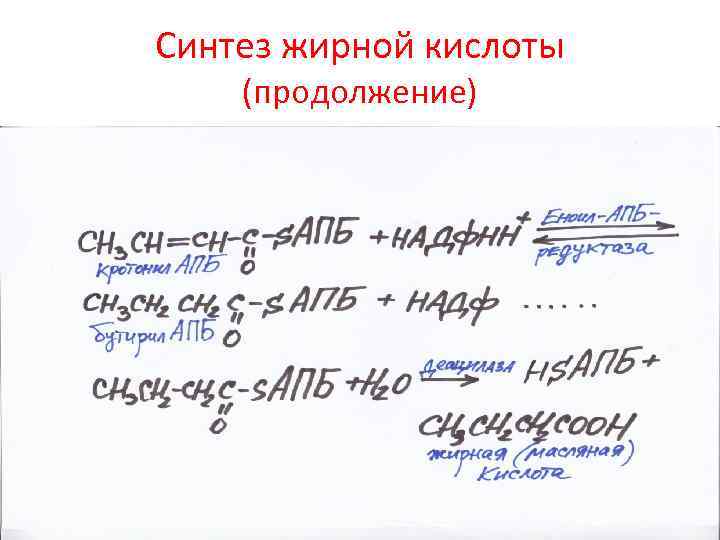 Синтез жирной кислоты
(продолжение)
CH3CH=CH-C-SАПБ + НАДФНН+ Еноил-АПБ-
O редуктаза
кротонил АПБ
CH3CH2CH2C-SАПБ + НАДФ ......
бутирил АПБ O
CH3CH2-CH2C-SАПБ + H2O деацилаза HSАПБ +
O
CH3CH2CH2COOH
жирная (масляная)
кислота